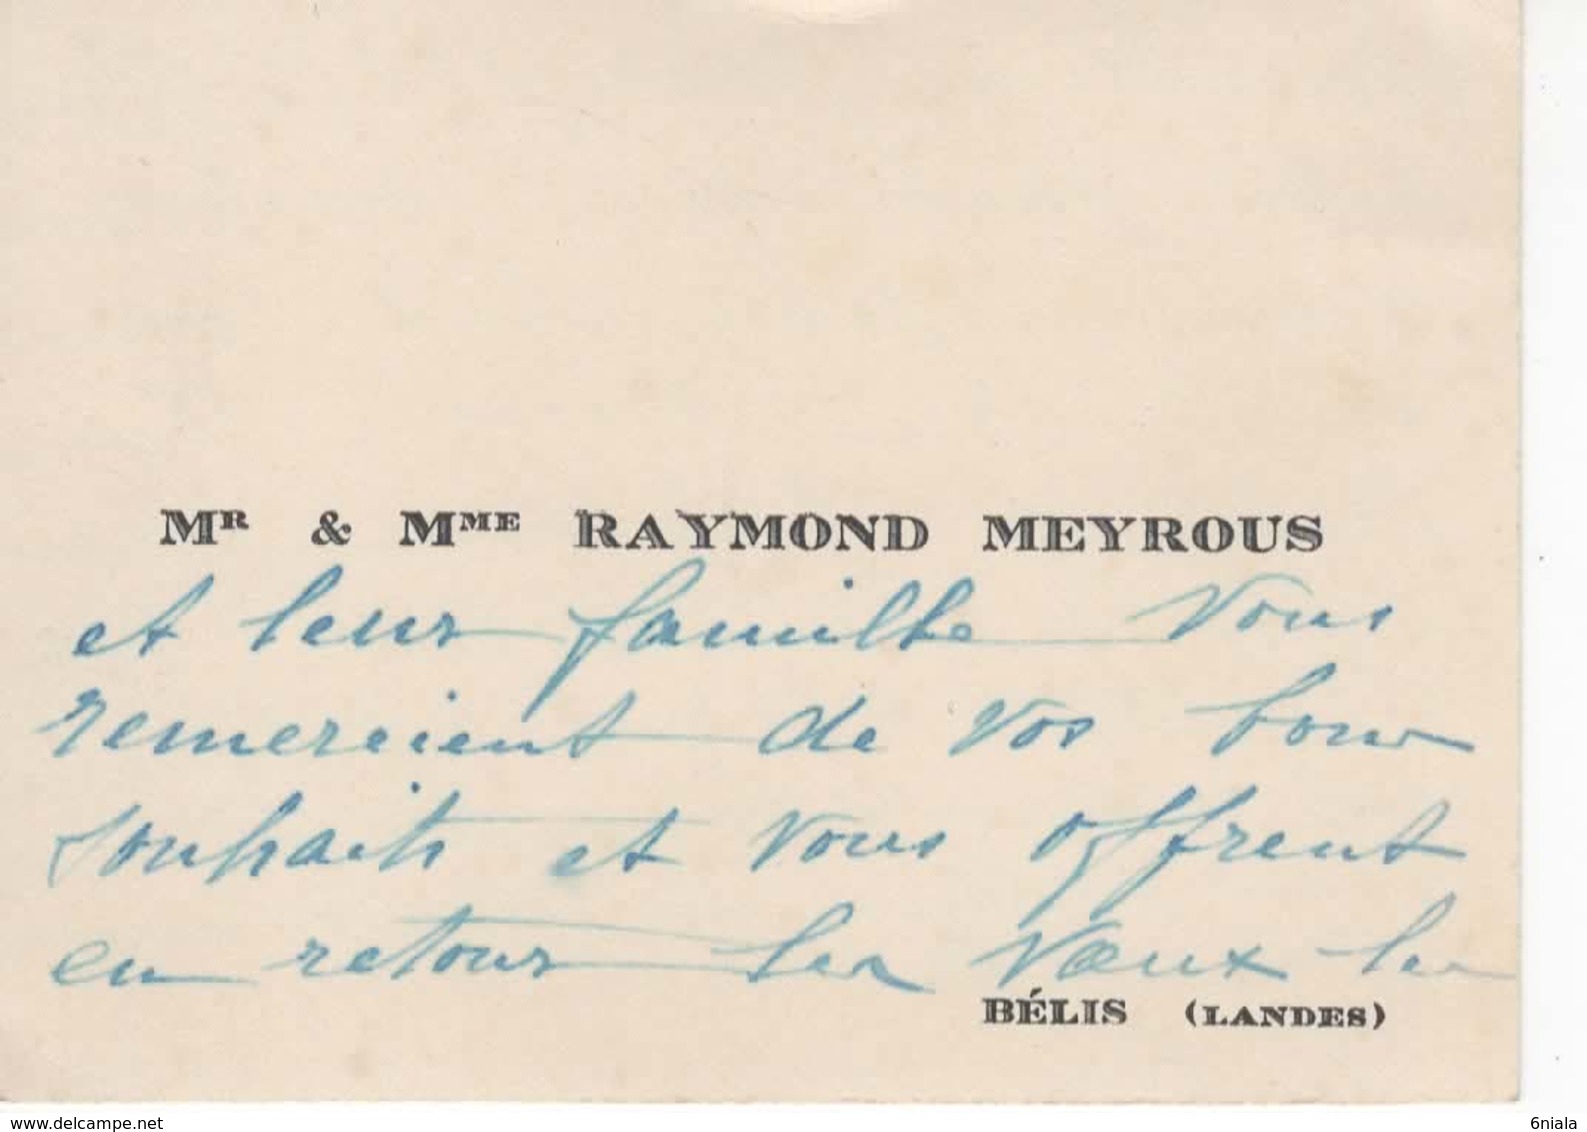 Mʀ & Mᴍᴇ RAYMOND MEYROUS
et leur famille vous
remercient de vos bons
souhaits et vous offrent
en retour les vœux les
BÉLIS (LANDES)
www.delcampe.net
6niala